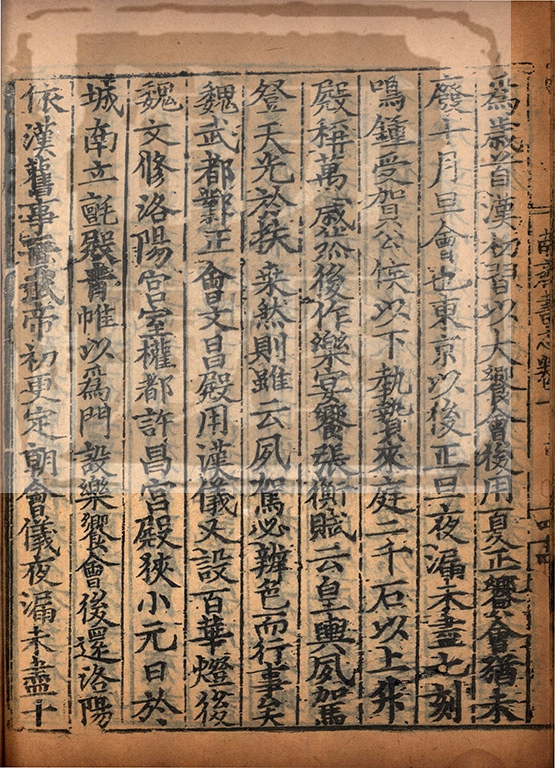 南齊書志卷一
爲歲首漢初習以大饗會後用夏正饗會猶未
廢十月旦會也東京以後正旦夜漏未盡七刻
鳴鐘受賀公侯以下執贄來庭二千石以上升
殿稱萬歲然後作樂宴饗張衡賦云皇輿夙駕
登天光於扶桒然則雖云夙駕必辨色而行事矣
魏武都鄴正會文昌殿用漢儀又設百華燈後
魏文修洛陽宮室權都許昌宮殿狹小元日於
城南立氈殿青帷以爲門設樂饗會後還洛陽
依漢舊事晉武帝初更定朝會儀夜漏未盡十